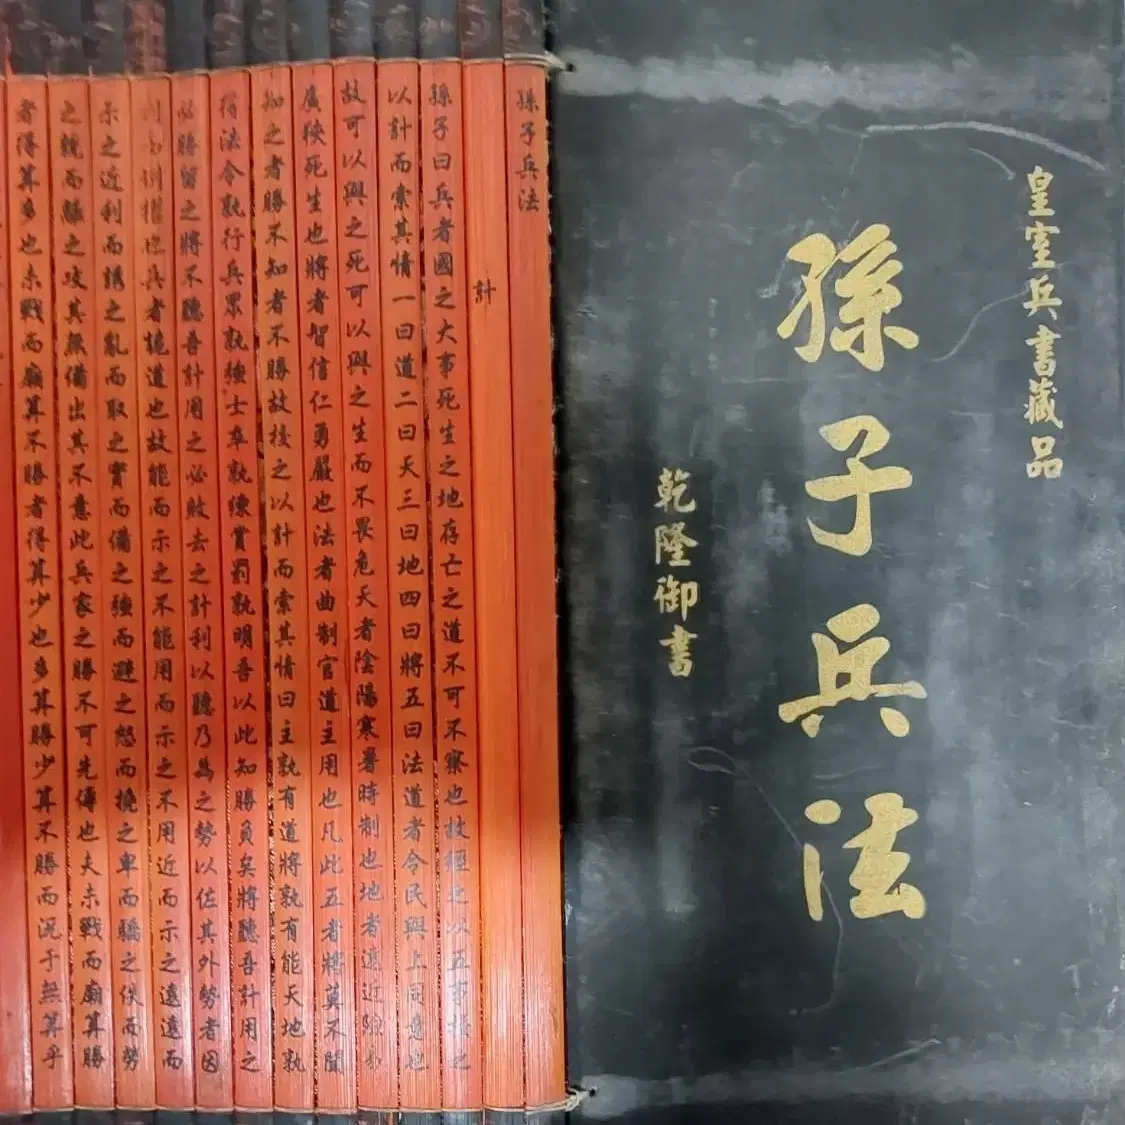 皇室兵書藏品
孫子兵法
乾隆御書
孫子兵法
計
孫子曰兵者國之大事死生之地存亡之道不可不察也故經之以五事校之
以計而索其情一曰道二曰天三曰地四曰將五曰法道者令民與上同意也
故可以與之死可以與之生而不畏危天者陰陽寒暑時制也地者遠近險易
廣狹死生也將者智信仁勇嚴也法者曲制官道主用也凡此五者將莫不聞
知之者勝不知者不勝故校之以計而索其情曰主孰有道將孰有能天地孰
得法令孰行兵眾孰強士卒孰練賞罰孰明吾以此知勝負矣將聽吾計用之
必勝留之將不聽吾計用之必敗去之計利以聽乃為之勢以佐其外勢者因
利而制權也兵者詭道也故能而示之不能用而示之不用近而示之遠遠而
示之近利而誘之亂而取之實而備之強而避之怒而撓之卑而驕之佚而勞
之親而離之攻其無備出其不意此兵家之勝不可先傳也夫未戰而廟算勝
者得算多也未戰而廟算不勝者得算少也多算勝少算不勝而況于無算乎